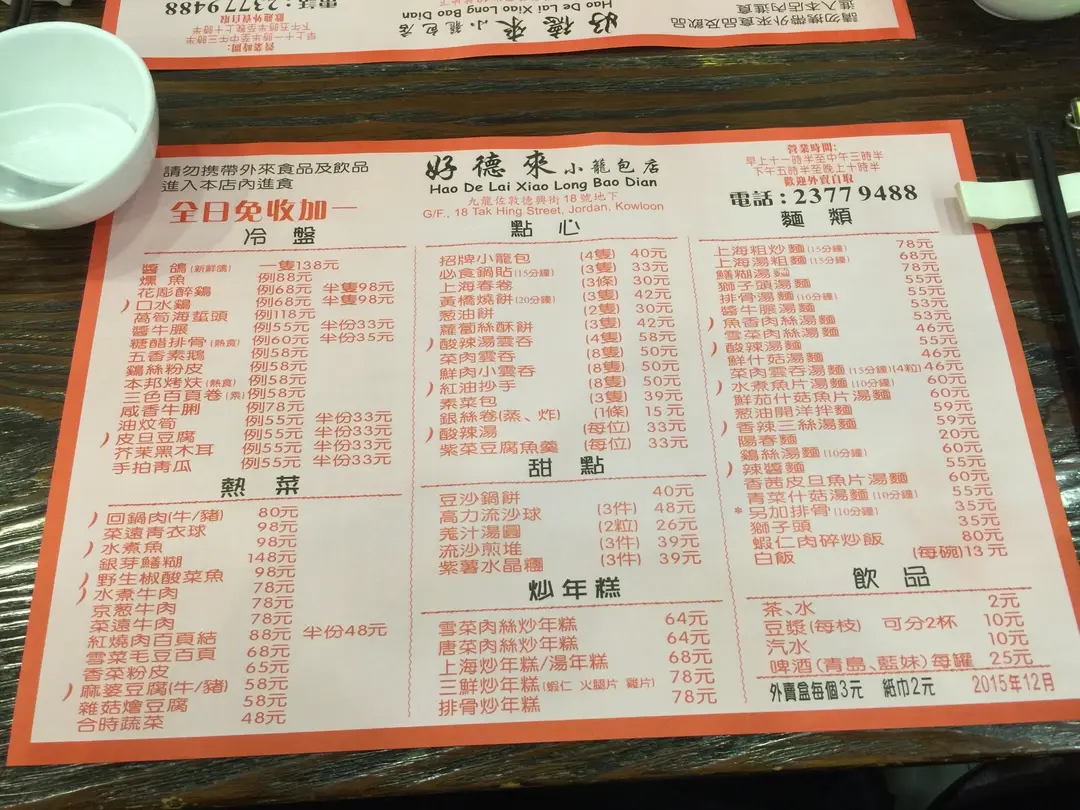 電話:23779488
歡迎外賣自取
下午五時半至晚上十時半
早上十一時半至中午三時半
營業時間:
好德來小籠包店
Hao De Lai Xiao Long Bao Dian
請勿攜帶外來食品及飲品
進入本店內進食
請勿攜帶外來食品及飲品
進入本店內進食
全日免收加一
好德來小籠包店
Hao De Lai Xiao Long Bao Dian
九龍佐敦德興街18號地下
G/F., 18 Tak Hing Street, Jordan, Kowloon
營業時間:
早上十一時半至中午三時半
下午五時半至晚上十時半
歡迎外賣自取
電話:23779488
冷盤
醬鴿(新鮮鴿) 一隻138元
燻魚 例88元
花彫醉鷄 例68元 半隻98元
)口水鷄 例68元 半隻98元
萵筍海蜇頭 例118元
醬牛腱 例55元 半份33元
糖醋排骨(熱食) 例60元 半份35元
五香素鵝 例58元
鷄絲粉皮 例58元
本邦烤麩(熱食) 例58元
三色百頁卷(素) 例58元
咸香牛脷 例78元
油炆筍 例55元 半份33元
)皮旦豆腐 例55元 半份33元
芥茉黑木耳 例55元 半份33元
手拍青瓜 例55元 半份33元
熱菜
)回鍋肉(牛/豬) 80元
菜遠青衣球 98元
)水煮魚 98元
銀芽鱔糊 148元
)野生椒酸菜魚 98元
)水煮牛肉 78元
京葱牛肉 78元
菜遠牛肉 78元
紅燒肉百頁結 88元 半份48元
雪菜毛豆百頁 68元
香菜粉皮 65元
)麻婆豆腐(牛/豬) 58元
雜菇燴豆腐 58元
合時蔬菜 48元
點心
招牌小籠包 (4隻) 40元
必食鍋貼(15分鐘) (3隻) 33元
上海春卷 (3條) 30元
黃橋燒餅(20分鐘) (3隻) 42元
葱油餅 (2隻) 30元
蘿蔔絲酥餅 (3隻) 42元
)酸辣湯雲吞 (4隻) 58元
菜肉雲吞 (8隻) 50元
鮮肉小雲吞 (8隻) 50元
)紅油抄手 (8隻) 50元
素菜包 (3隻) 39元
銀絲卷(蒸、炸) (1條) 15元
)酸辣湯 (每位) 33元
紫菜豆腐魚羹 (每位) 33元
甜點
豆沙鍋餅 40元
高力流沙球 (3件) 48元
擂汁湯圓 (2粒) 26元
流沙煎堆 (3件) 39元
紫薯水晶糰 (3件) 39元
炒年糕
雪菜肉絲炒年糕 64元
唐菜肉絲炒年糕 64元
上海炒年糕/湯年糕 68元
三鮮炒年糕(蝦仁 火腿片 雞片) 78元
排骨炒年糕 78元
麵類
上海粗炒麵(15分鐘) 78元
上海湯粗麵(15分鐘) 68元
鱔糊湯麵 78元
獅子頭湯麵 55元
排骨湯麵(10分鐘) 55元
醬牛腱湯麵 53元
)魚香肉絲湯麵 53元
雪菜肉絲湯麵 46元
)酸辣湯麵 55元
鮮什菇湯麵 46元
菜肉雲吞湯麵(15分鐘)(4粒) 46元
)水煮魚片湯麵(10分鐘) 60元
鮮茄什菇魚片湯麵 60元
葱油開洋拌麵 59元
)香辣三絲湯麵 59元
陽春麵 20元
鷄絲湯麵(10分鐘) 60元
)辣醬麵 55元
香茜皮旦魚片湯麵 60元
青菜什菇湯麵(10分鐘) 55元
*另加排骨(10分鐘) 35元
獅子頭 35元
蝦仁肉碎炒飯 80元
白飯 (每碗)13元
飲品
茶、水 2元
豆漿(每枝) 可分2杯 10元
汽水 10元
啤酒(青島、藍妹)每罐 25元
外賣盒每個3元 紙巾2元 2015年12月